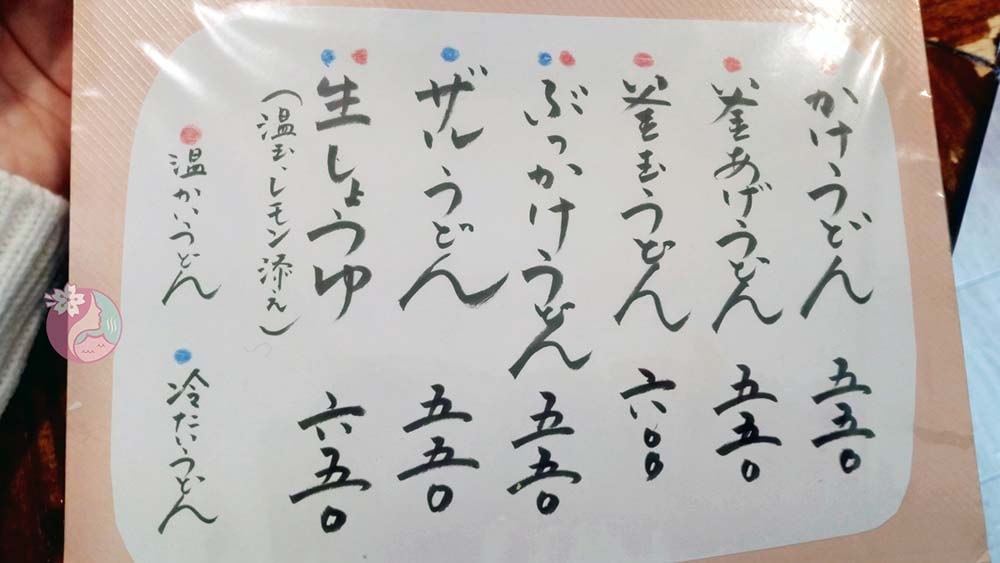 かけうどん 五五〇
釜あげうどん 五五〇
釜玉うどん 六〇〇
ぶっかけうどん 五五〇
ザルうどん 五五〇
生しょうゆ 六五〇
(温玉、レモン添え)
温かいうどん
冷たいうどん